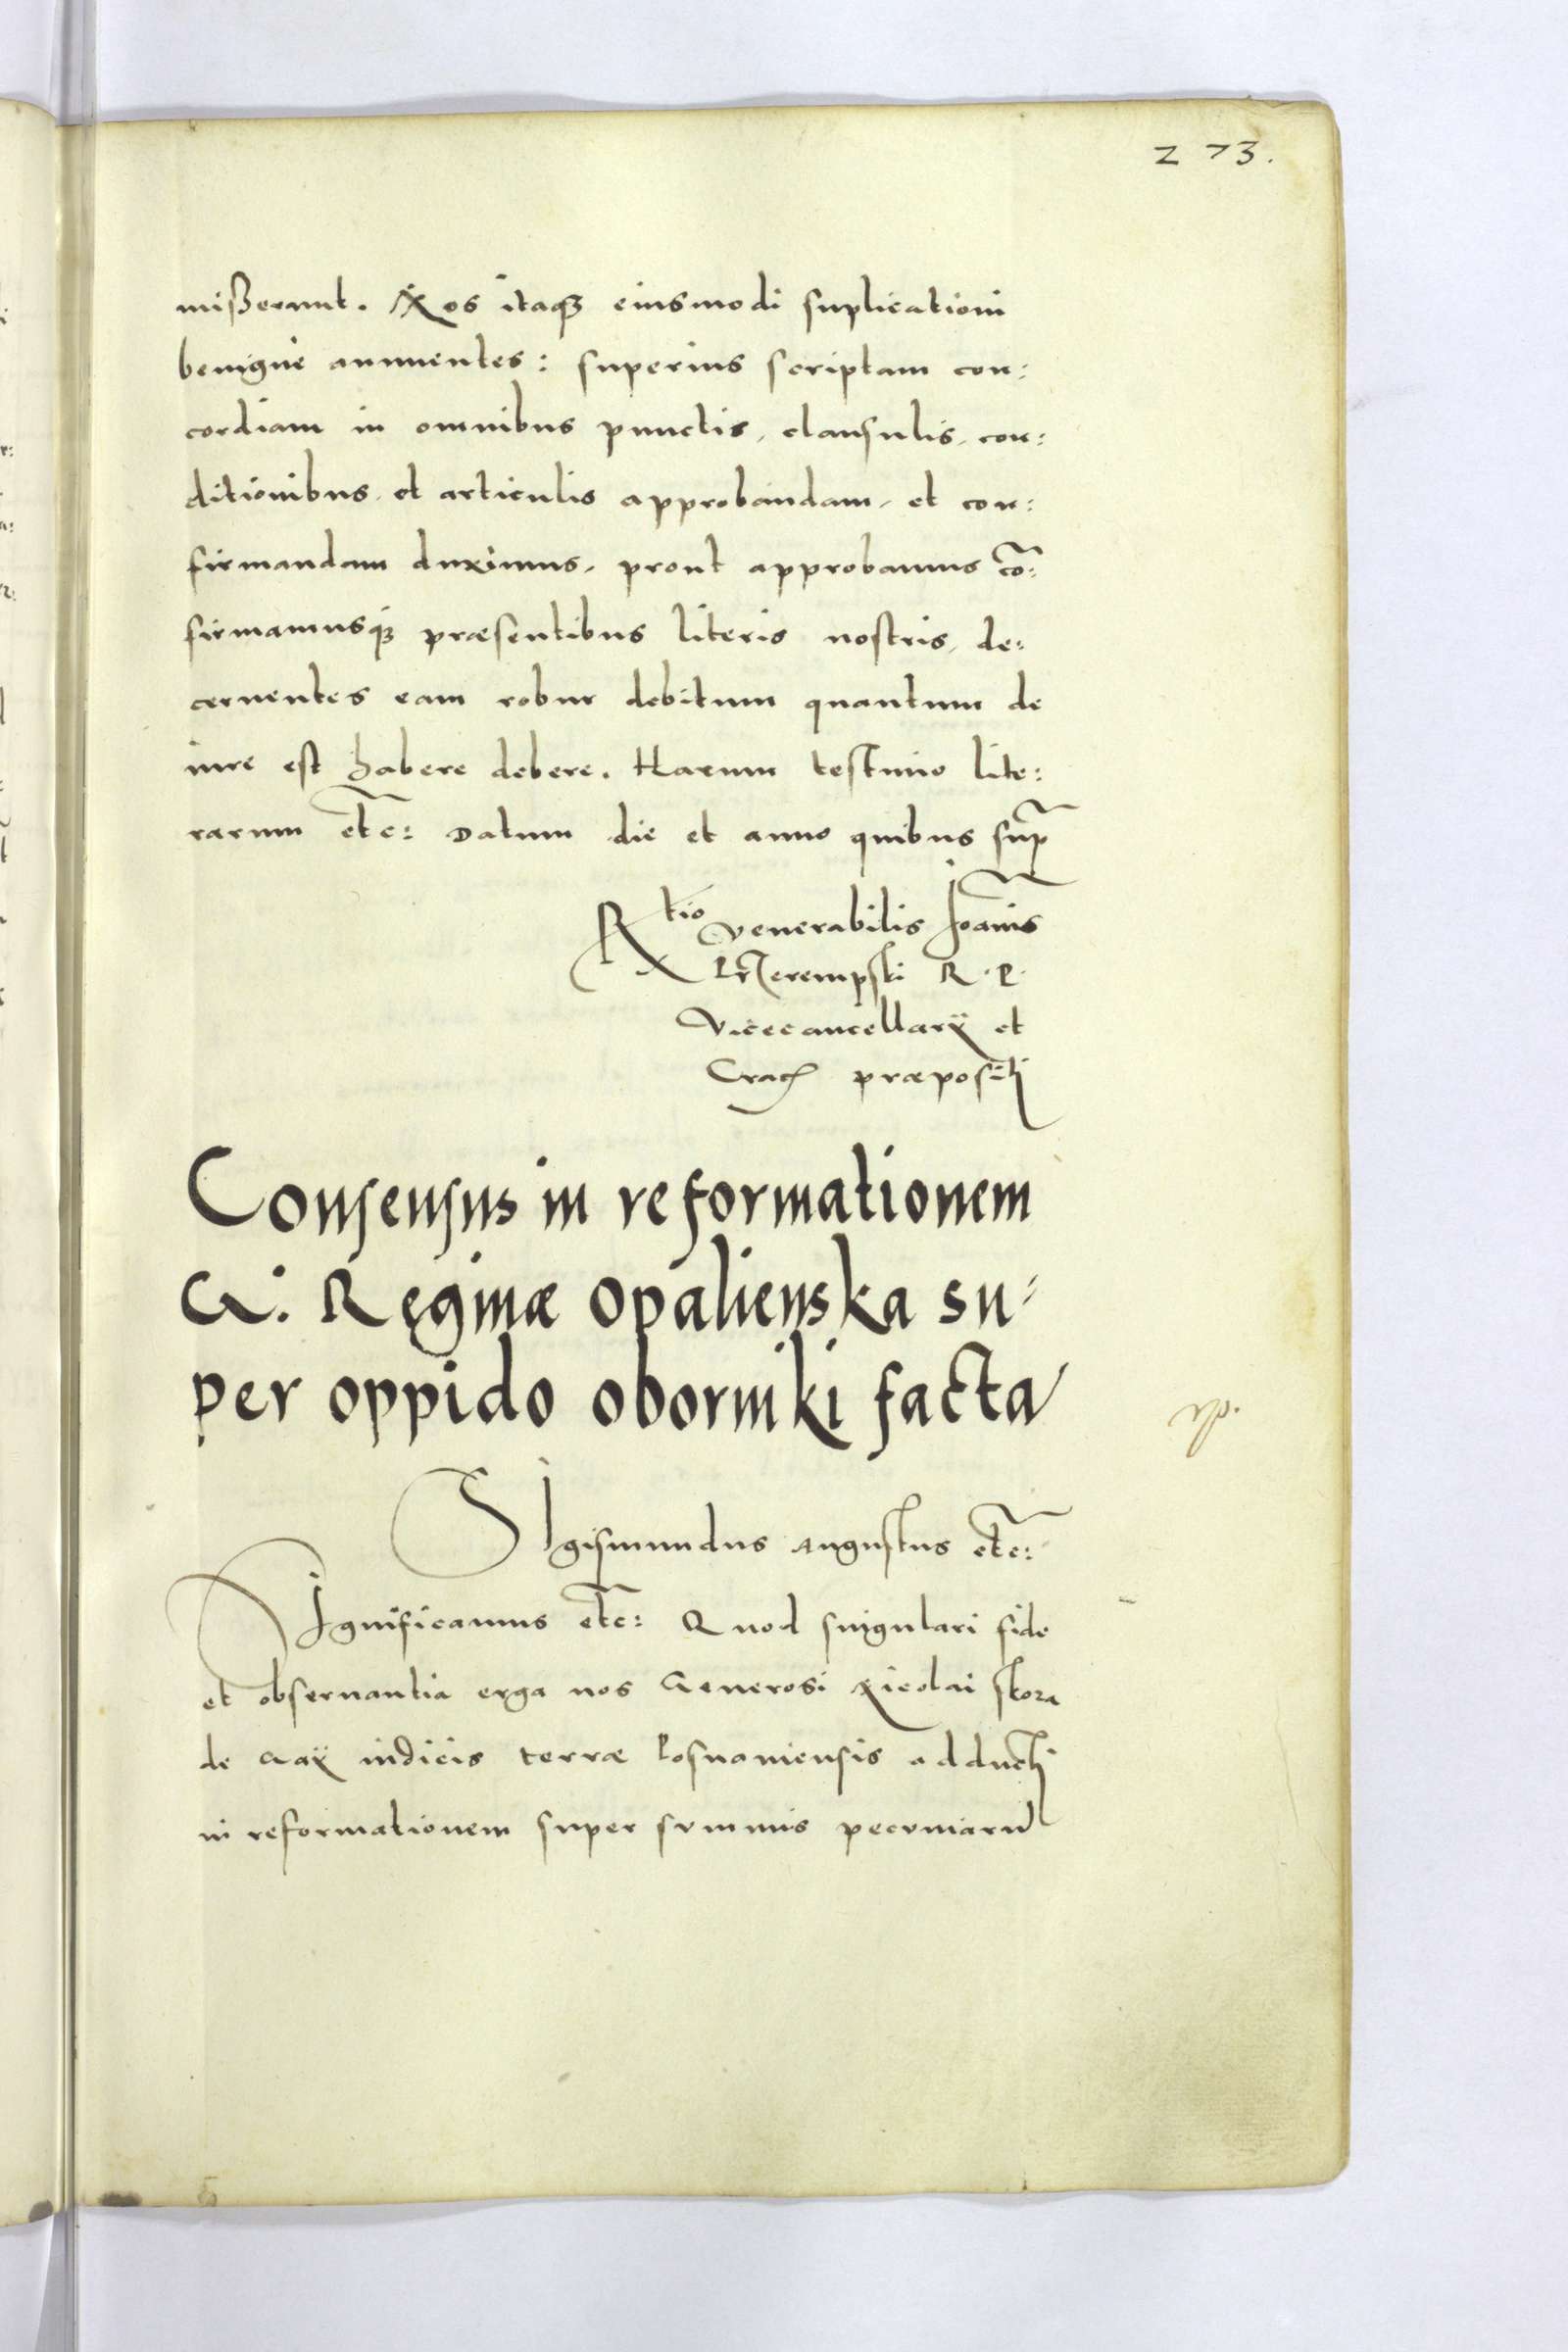 273.
mißerunt. Nos itaqȝ eiusmodi suplicationi
benigne annuentes: superius scriptam con:
cordiam in omnibus punctis, clausulis, con:
ditionibus, et articulis approbandam, et con:
firmandam duximus, prout approbamus cõ:
firmamusqȝ præsentibus literis nostris, de:
cernentes eam robur debitum quantum de
iure est habere debere. Harum testimo lite:
rarum etc: Datum die et anno quibus sup
Rtio venerabilis Joanis
Przerempski R. P.
Vicecancellarÿ et
Crac præpositi
Consensus in reformationem
G. Reginæ Opalienska su:
per oppido oborniki facta
SIgismundus Augustus etc:
SIgnificamus etc: Quod singulari fide
et obseruantia erga nos Generosi Nicolai skora
de Gaÿ iudicis terræ Posnaniensis adducti
in reformationem super summis pecuniarũ